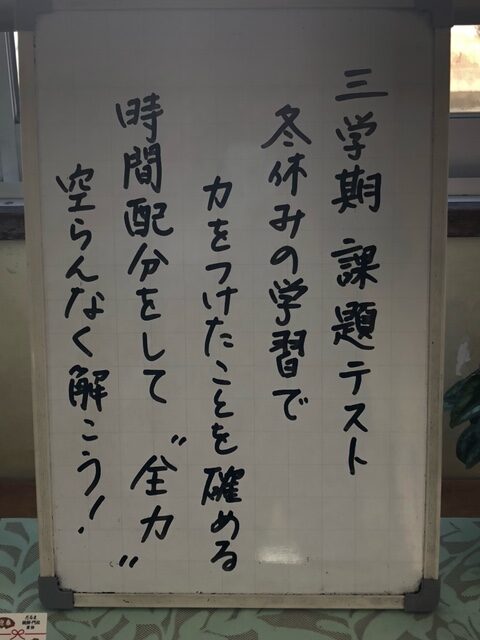 三学期 課題テスト
冬休みの学習で
力をつけたことを確める
時間配分をして〝全力〟
空らんなく解こう!